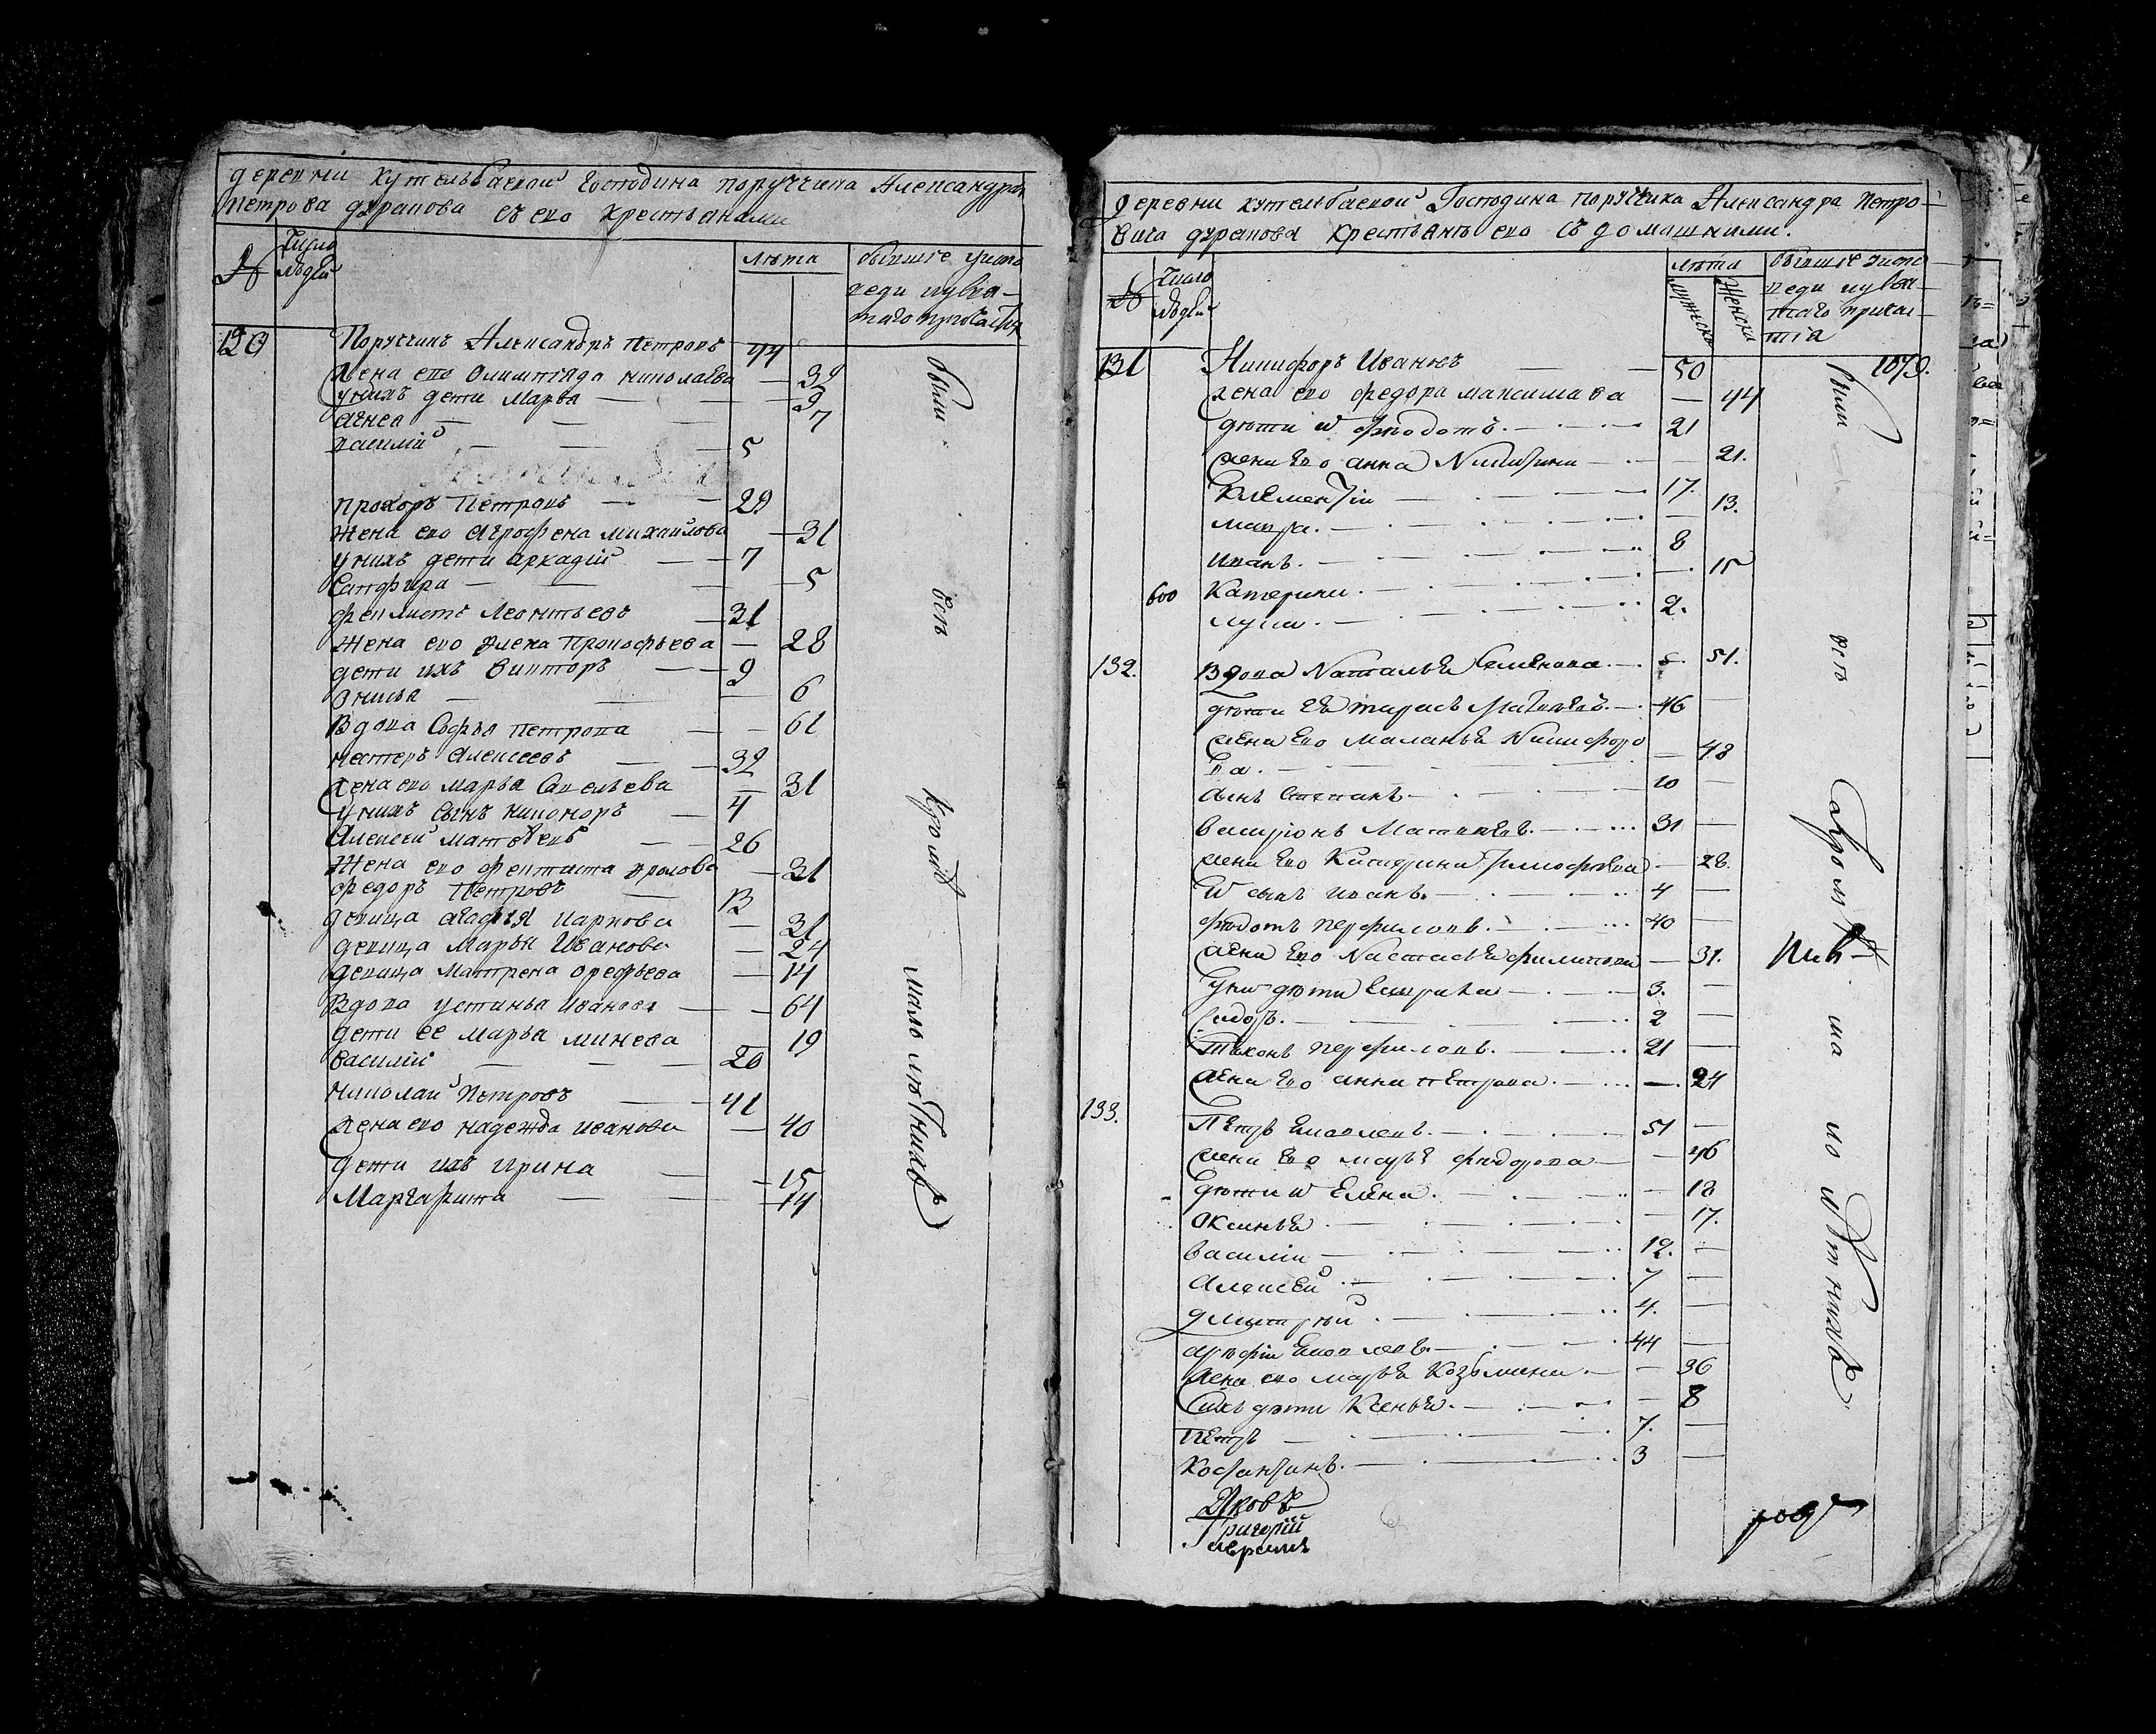 деревни кутельбаевой Господина поручика Александра
Петрова дурапова съ ево крестьянами
№
Число людей
лѣта
бывшие у испо
веди и у свя-
таго причастия
130
Поручикъ Александръ Петровъ — 44
Жена ево Олимпияда николаева — 32
у нихъ дети Марва — 9
агнеа — 7
василий — 5
прохоръ Петровъ — 29
Жена ево агрофена михайлова — 31
у нихъ дети аркадий — 7
Сапфира — 5
феклистъ Леонтьевъ — 31
Жена ево Елена Прокофьева — 28
дети ихъ викторъ — 9
— 6
Вдова Софья петрова — 61
нестеръ Алексеевъ — 32
жена ево марья Савельева — 31
у нихъ сынъ никоноръ — 4
Алексей матвѣевъ — 26
Жена ево фектиста фролова — 31
федоръ Петровъ — 13
девица агафья карпова — 31
девица Марья Иванова — 24
девица Матрена орефьева — 14
Вдова устинья Иванова — 64
дети ее Марья минеева — 19
василий — 20
николай Петровъ — 41
жена ево надежда иванова — 40
дети ихъ ирина — 15
Маргарита — 14
были
всѣ
кромѣ
малолѣтнихъ
деревни кутельбаевой Господина поручика Александра Петро-
вича дурапова крестьянъ ево съ домашними.
№
Число людей
лѣта
мужеска
женска
бывшие у испо
веди и у свя-
таго причас-
тия
1079.
131
Никифоръ Ивановъ — 50
жена ево федора максимова — 44
дѣти и ѳедотъ — 21
жена ево анна Никитина — 21.
Клементий — 17.
мавра. — 13.
иванъ. — 8
600 Катерина. — 15
лука. — 2.
132. Вдова Наталья Семенова. — 51.
дѣти ея тарасъ Матвеевъ. — 46
жена ево Маланья Никифоро
ва. — 48
сынъ степанъ. — 10
Матвеевъ. — 31
жена ево Катерина Тимофеева — 28.
и сынъ иванъ. — 4
ѳедотъ перфиловъ. — 40
жена ево Настасья филипова — 31.
у ни дѣти — 3.
Сидоръ. — 2
Тихонъ перфиловъ. — 21
жена ево анна петрова. — 24
133. Петръ — 51
жена ево марья федорова — 46
дѣти и Елена. — 18
Оксинья. — 17.
василий — 12.
Алексей. — 7
дмитрей. — 4.
— 44
жена ево марья Козьмина. — 36
У ихъ дѣти Ксенья. — 8
Петръ — 7.
Костянтинъ. — 3
Яковъ
Григорий
аврамъ
были
всѣ
кромѣ
ма
ло
лѣтнихъ